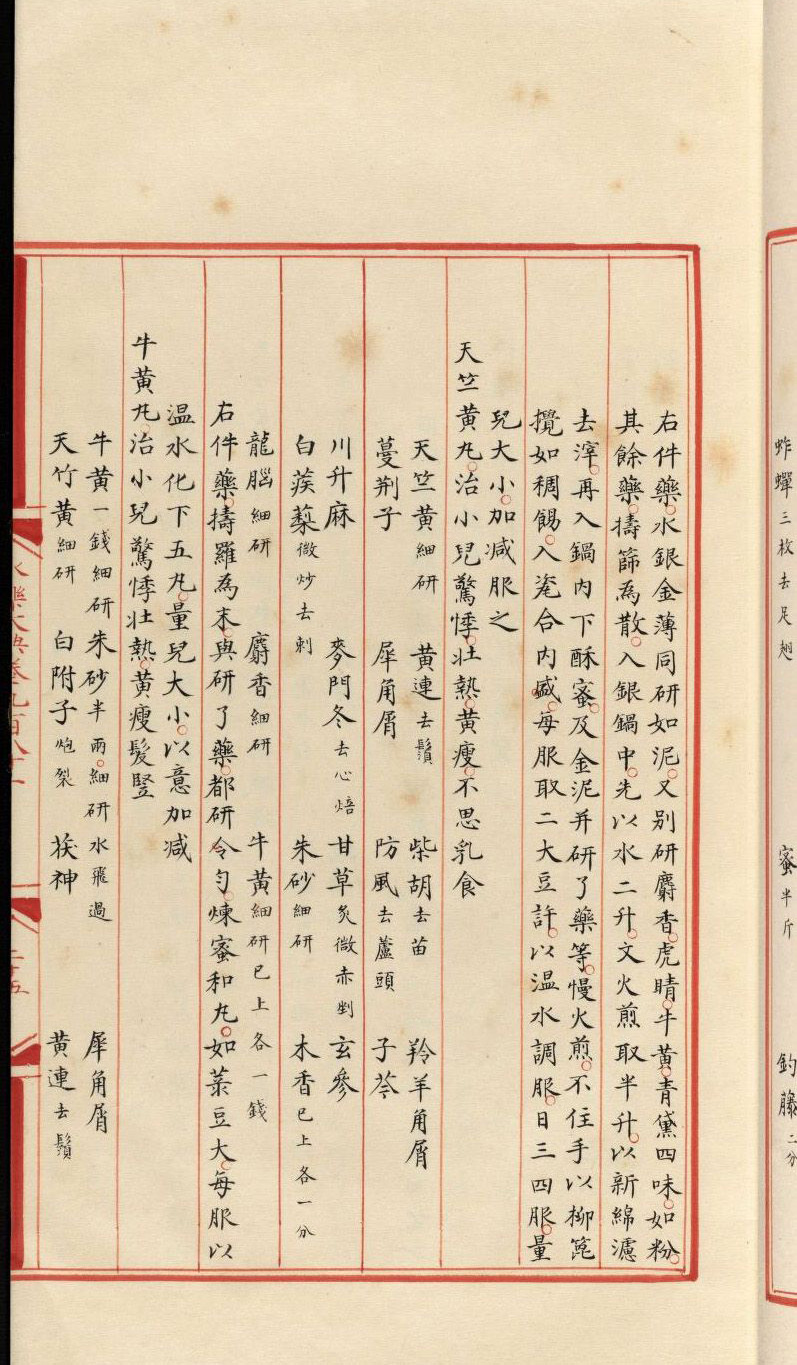 蚱蟬三枚去足翅 蜜半斤 釣藤二分
右件藥水銀金薄同研如泥又別研麝香虎睛牛黃青黛四味如粉
其餘藥擣篩為散入銀鍋中先以水二升文火煎取半升以新綿濾
去滓再入鍋內下酥蜜及金泥并研了藥等慢火煎不住手以柳篦
攪如稠餳入瓷合內盛每服取二大豆許以温水調服日三四服量
兒大小加減服之
天竺黃丸治小兒驚悸壯熱黃瘦不思乳食
天竺黃細研 黃連去鬚 柴胡去苗 羚羊角屑
蔓荆子 犀角屑 防風去蘆頭 子芩
川升麻 麥門冬去心焙 甘草炙微赤剉 玄參
白蒺蔾微炒去刺 朱砂細研 木香已上各一分
龍腦細研 麝香細研 牛黃細研已上各一錢
右件藥擣羅為末與研了藥都研令勻煉蜜和丸如菉豆大每服以
温水化下五丸量兒大小以意加減
牛黃丸治小兒驚悸壯熱黃瘦髮豎
牛黃一錢細研 朱砂半兩細研水飛過 犀角屑
天竹黃細研 白附子炮裂 茯神 黃連去鬚
永樂大典卷九百八十一
二十五